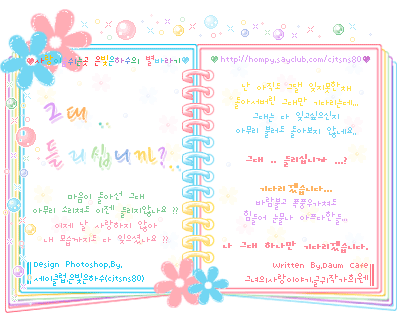 ♥사랑이 쉬는곳 은빛은하수의 별바라기♥
그대
..
들리십니까?...
마음이 돌아선 그대
아무리 소리쳐도 이젠 들리지않나요 ??
이제 날 사랑하지 않아
내 목소리조차 다 잊으셨나요 ??
Design Photoshop,By,
세이클럽은빛은하수(citsns80)
♥http://hompy.sayclub.com/citsns80♥
난 아직도 그댈 잊지못한채
돌아서버린 그대만 기다리는데...
그대는 다 잊고싶은신지
아무리 불러도 돌아보지 않네요..
그대 .. 들리십니까 ...?
기다리겠습니다...
바람불고 폭풍우가쳐도
힘들어 눈물나 아프다한들...
나 그대 하나만 기다리겠습니다.
Written By,Daum Cafe
그녀의사랑이야기,글귀작가의원